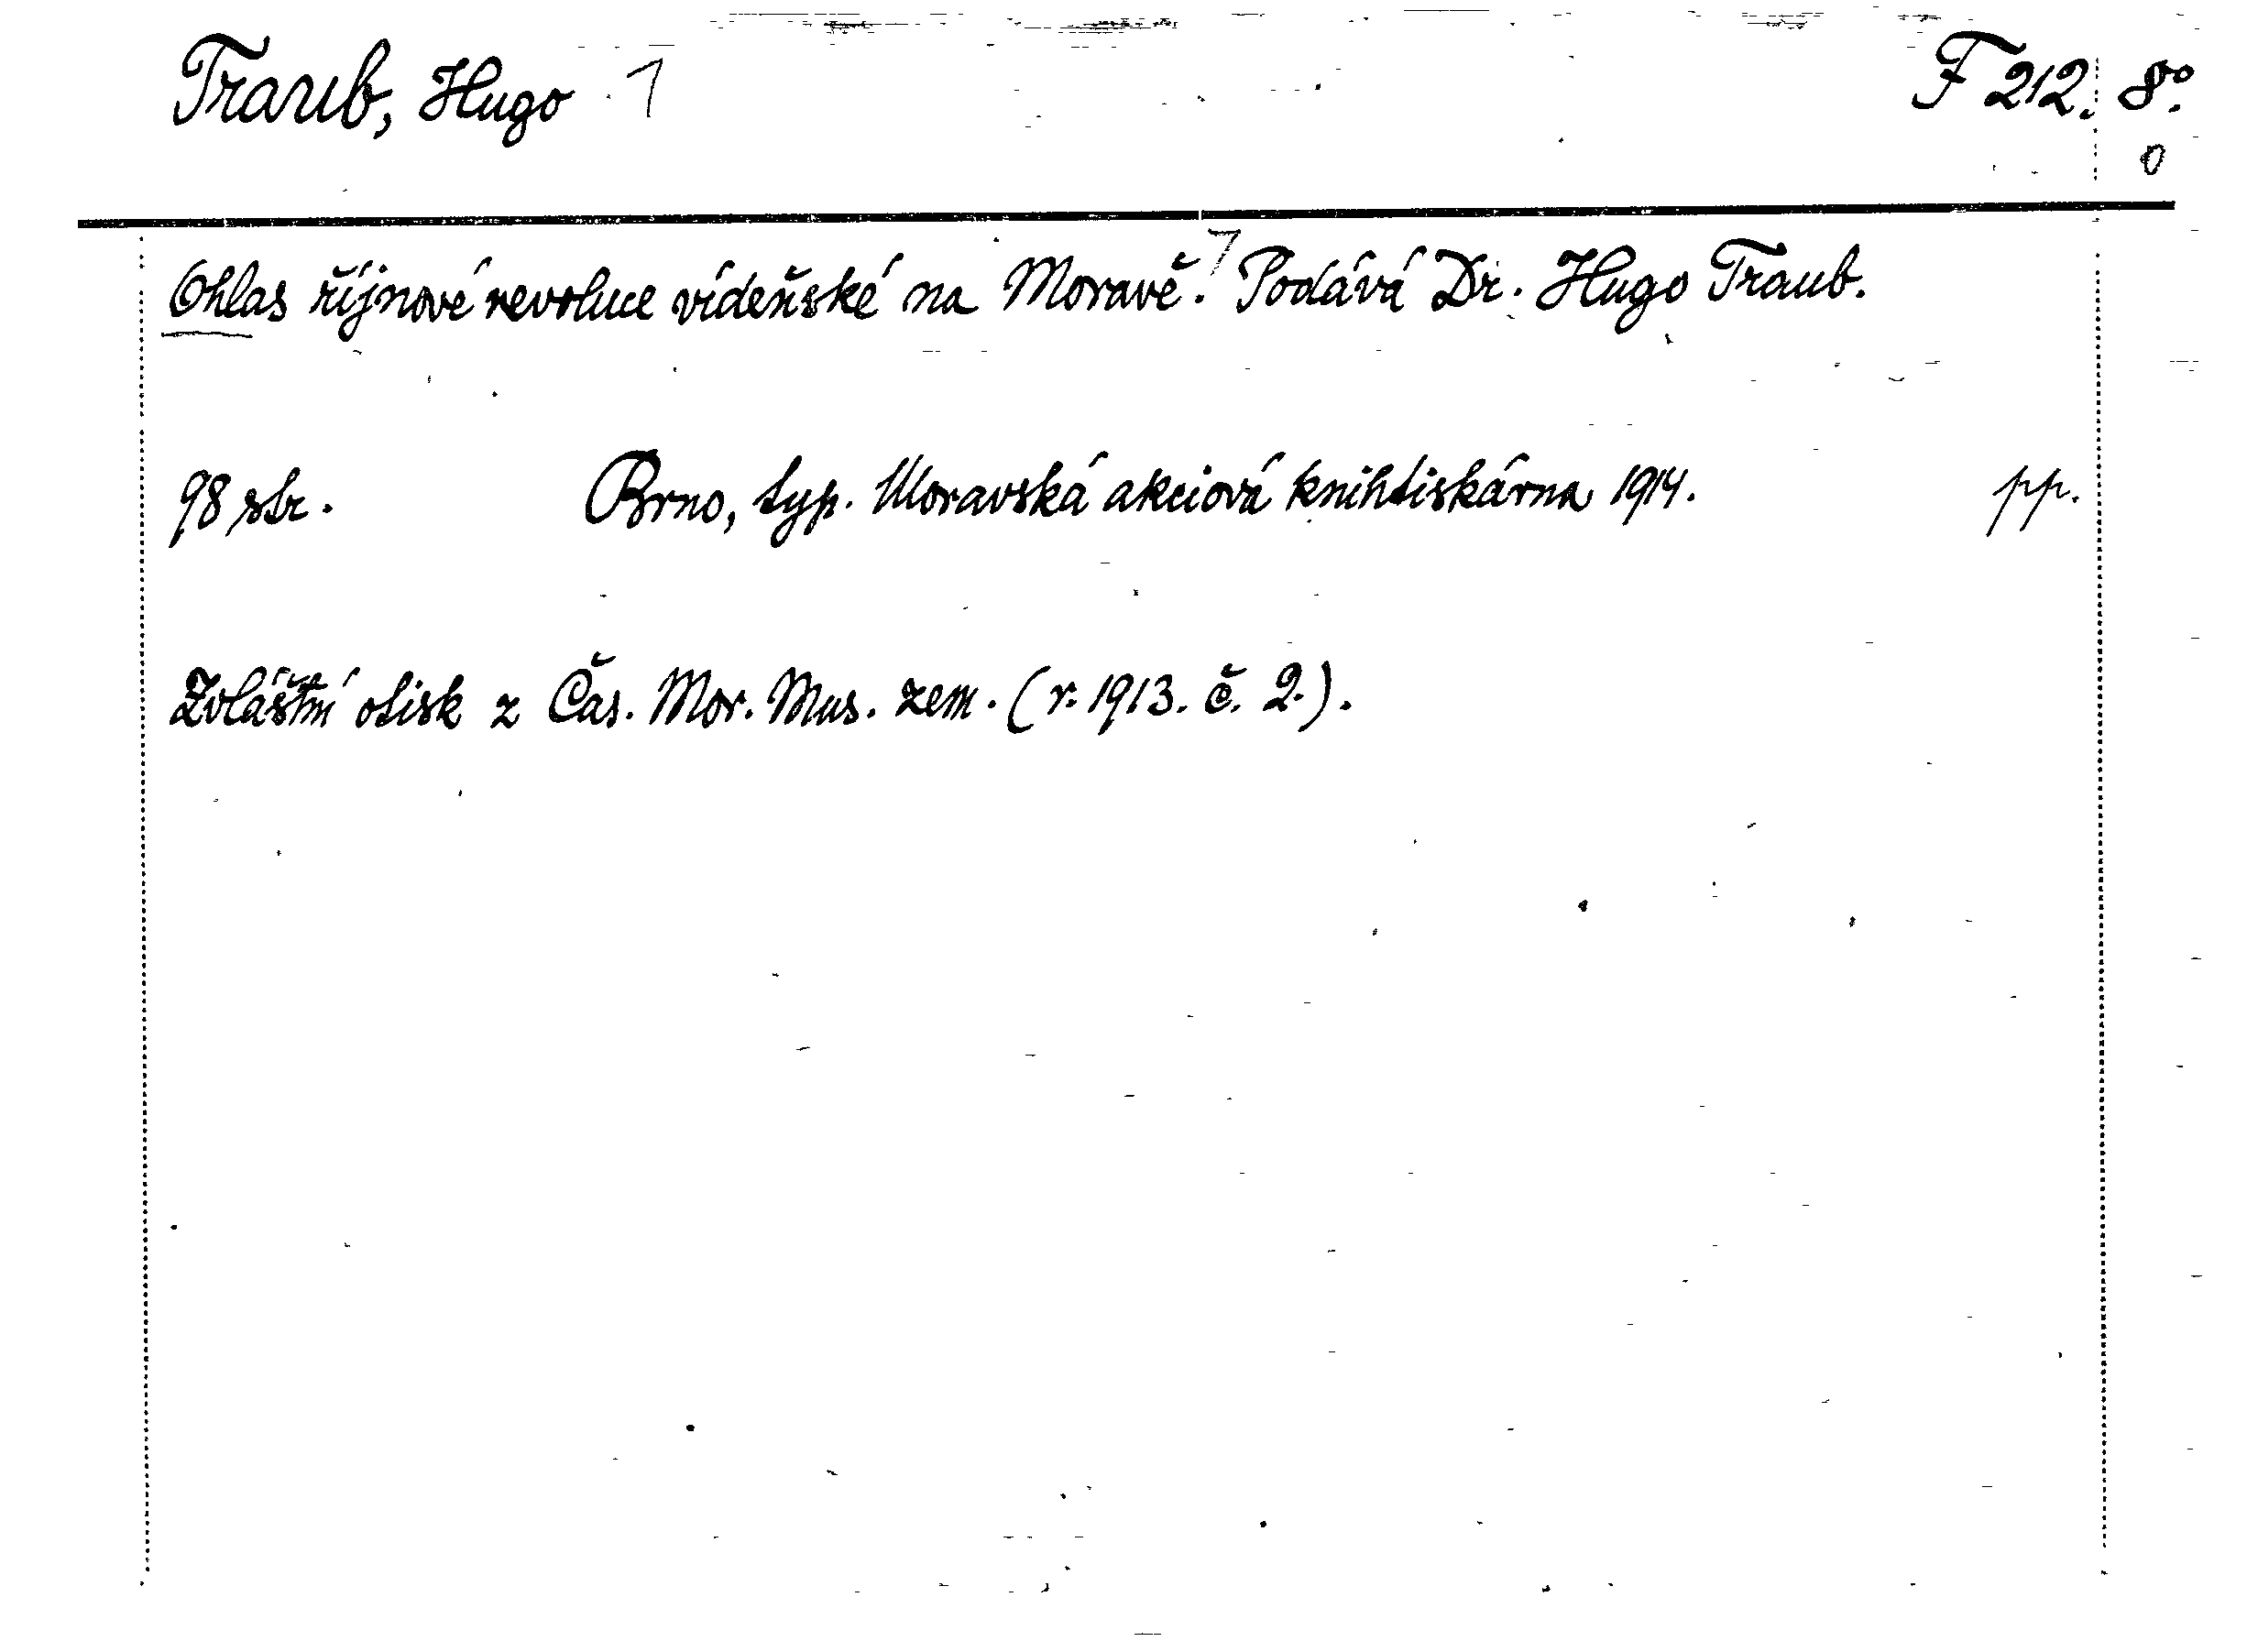 Traub, Hugo 1 F 212. 8°.
0
Ohlas říjnové revoluce vídeňské na Moravě. Podává Dr. Hugo Traub.
98 str. Brno, typ. Moravská akciová knihtiskárna 1914. pp.
Zvláštní otisk z Čas. Mor. Mus. zem. (r. 1913. č. 2.).